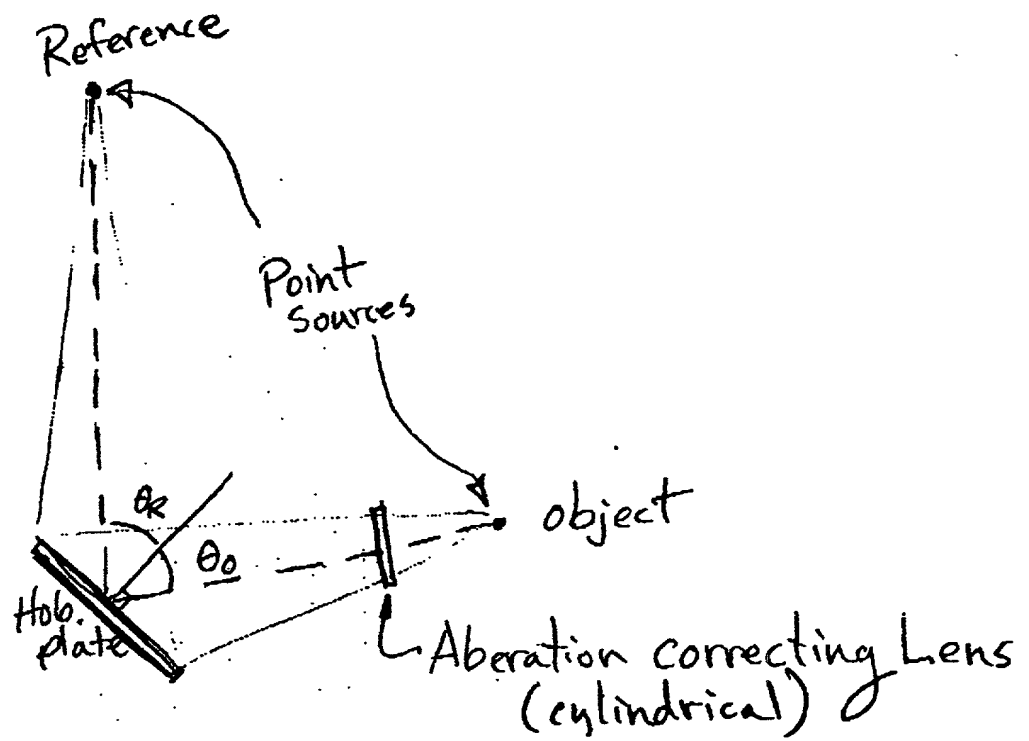 Reference
Point
Sources
θR
θo
object
Hob.
plate
Aberation correcting Lens
(cylindrical)